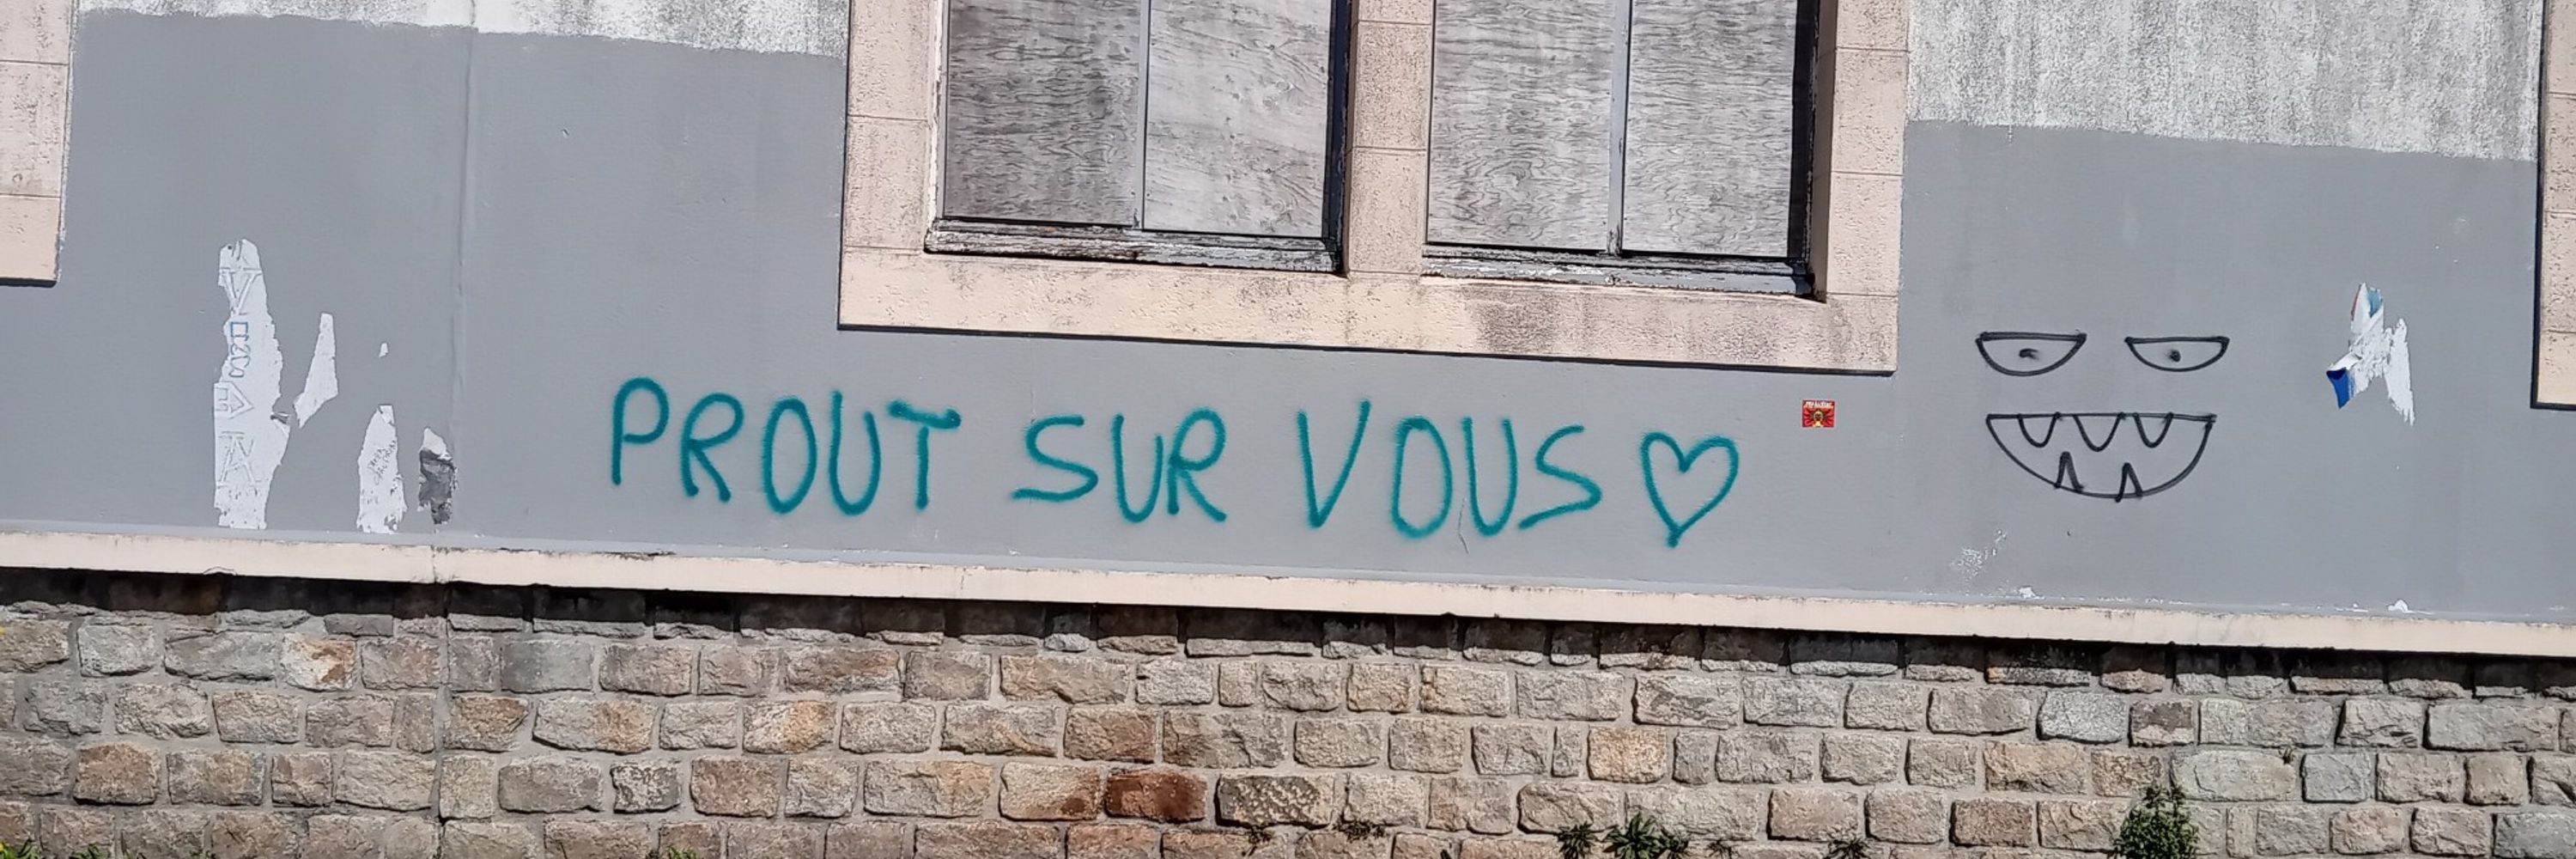 PROUT SUR VOUS ♡